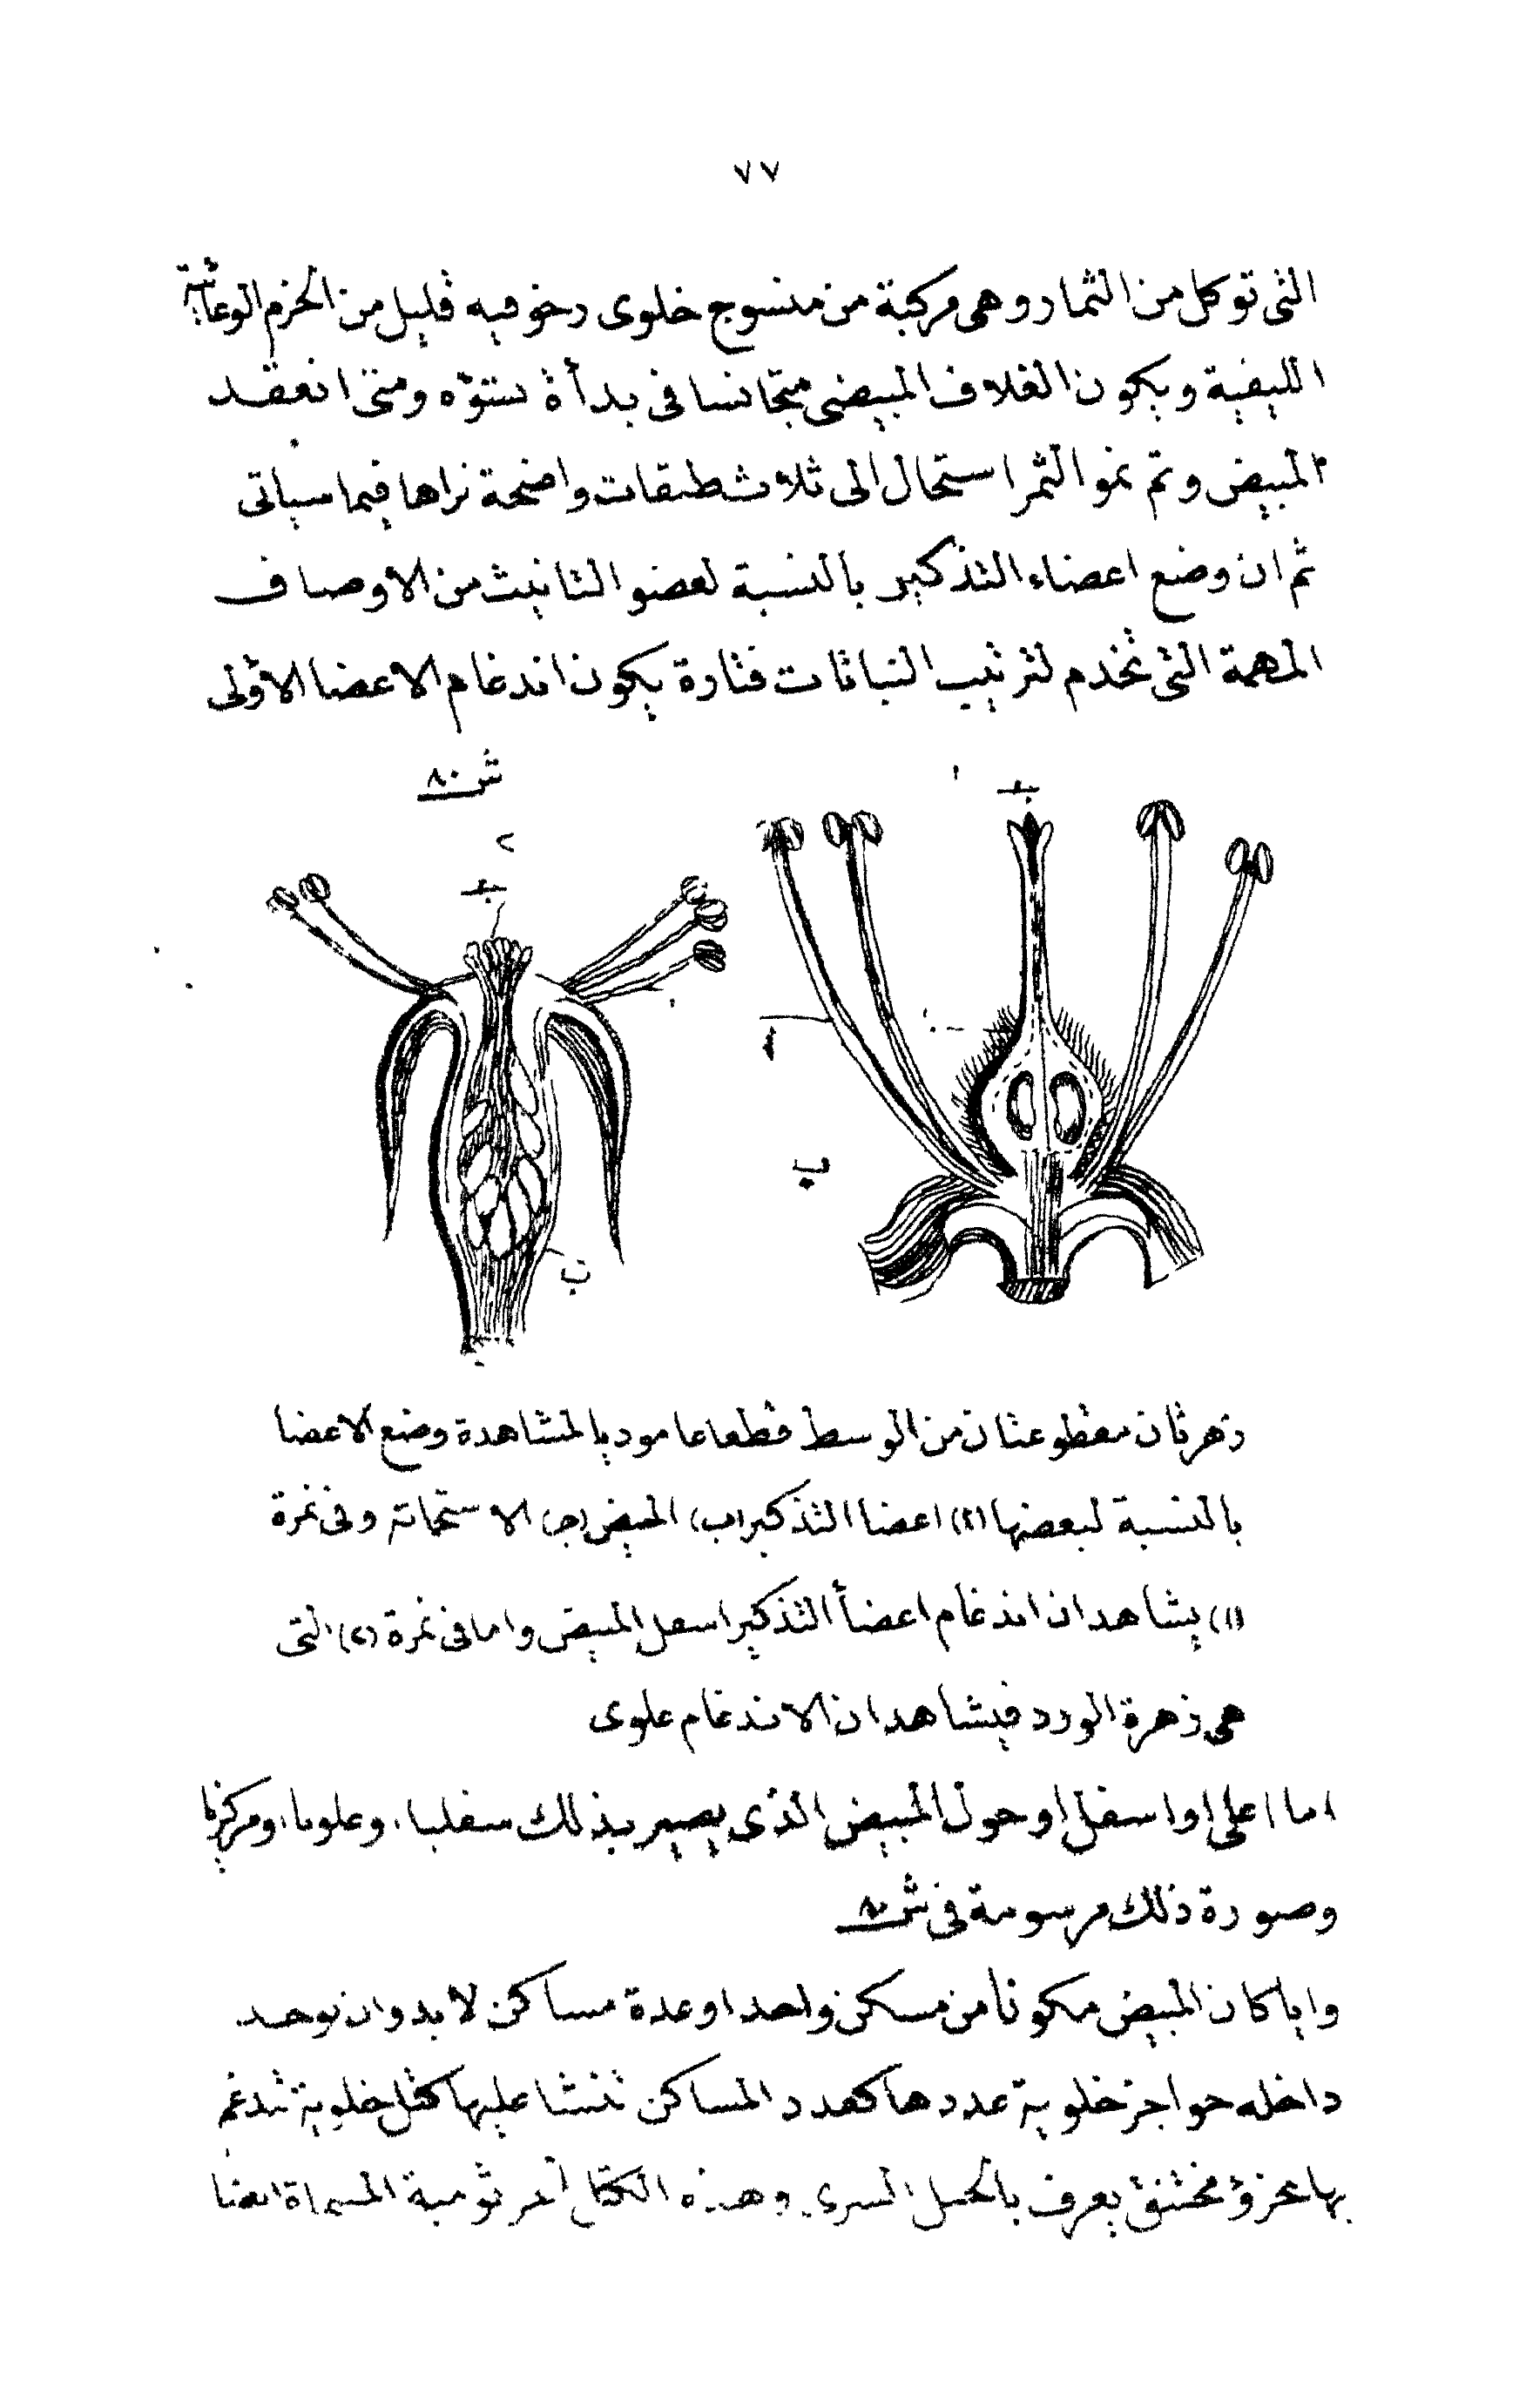 ٧٧
التى توكل من الثمار وهى مركبة من منسوج خلوى رخو فيه قليل من الحزم الوعائية
الليفية ويكون الغلاف المبيضى متجانسا فى بدأة نتؤه ومتى انعقد
المبيض وتم نمو الثمر استحال الى ثلاث طبقات واضحة نراها فيما سياتى
ثم ان وضع اعضاء التذكير بالنسبة لعضو التانيث من الاوصاف
المهمة التى تخدم لترتيب النباتات فتارة يكون اندغام الاعضا الاولى
ش ٨٠
١
ج
٢
ج
ا
ب
ب
زهرتان مقطوعتان من الوسط قطعا عاموديا لمشاهدة وضع الاعضا
بالنسبة لبعضها (٢) اعضا التذكير (ب) المبيض (ج) الاستجماتة وفى نمرة
(١) يشاهد ان اندغام اعضأ التذكير اسفل المبيض واما فى نمرة (٢) التى
هى زهرة الورد فيشاهد ان الاندغام علوى
اما اعلى او اسفل او حول المبيض الذى يصير بذلك سفليا، وعلويا، ومركزيا
وصورة ذلك مرسومة فى ش ٨٠
وايا كان المبيض مكونا من مسكن واحد او عدة مساكن لا بد وان توجد
داخله حواجز خلوية عددها كعدد المساكن تنشا عليها كتل خلوية تندغم
بها بجزؤ مختنق يعرف بالحبل السرى وهذه الكتل الجرثومية المسماة ايضا